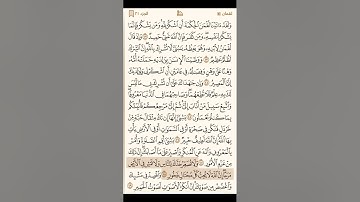 الجزء ٢١ لقمان
وَلَقَدْ ءَاتَيْنَا لُقْمَٰنَ ٱلْحِكْمَةَ أَنِ ٱشْكُرْ لِلَّهِ وَمَن يَشْكُرْ فَإِنَّمَا
يَشْكُرُ لِنَفْسِهِۦ وَمَن كَفَرَ فَإِنَّ ٱللَّهَ غَنِىٌّ حَمِيدٌ ١٢ وَإِذْ قَالَ
لُقْمَٰنُ لِٱبْنِهِۦ وَهُوَ يَعِظُهُۥ يَٰبُنَىَّ لَا تُشْرِكْ بِٱللَّهِ إِنَّ ٱلشِّرْكَ
لَظُلْمٌ عَظِيمٌ ١٣ وَوَصَّيْنَا ٱلْإِنسَٰنَ بِوَٰلِدَيْهِ حَمَلَتْهُ أُمُّهُۥ
وَهْنًا عَلَىٰ وَهْنٍ وَفِصَٰلُهُۥ فِى عَامَيْنِ أَنِ ٱشْكُرْ لِى وَلِوَٰلِدَيْكَ
إِلَىَّ ٱلْمَصِيرُ ١٤ وَإِن جَٰهَدَاكَ عَلَىٰٓ أَن تُشْرِكَ بِى مَا لَيْسَ
لَكَ بِهِۦ عِلْمٌ فَلَا تُطِعْهُمَا وَصَاحِبْهُمَا فِى ٱلدُّنْيَا مَعْرُوفًا
وَٱتَّبِعْ سَبِيلَ مَنْ أَنَابَ إِلَىَّ ثُمَّ إِلَىَّ مَرْجِعُكُمْ فَأُنَبِّئُكُم
بِمَا كُنتُمْ تَعْمَلُونَ ١٥ يَٰبُنَىَّ إِنَّهَآ إِن تَكُ مِثْقَالَ حَبَّةٍ مِّنْ
خَرْدَلٍ فَتَكُن فِى صَخْرَةٍ أَوْ فِى ٱلسَّمَٰوَٰتِ أَوْ فِى ٱلْأَرْضِ يَأْتِ
بِهَا ٱللَّهُ إِنَّ ٱللَّهَ لَطِيفٌ خَبِيرٌ ١٦ يَٰبُنَىَّ أَقِمِ ٱلصَّلَوٰةَ وَأْمُرْ
بِٱلْمَعْرُوفِ وَٱنْهَ عَنِ ٱلْمُنكَرِ وَٱصْبِرْ عَلَىٰ مَآ أَصَابَكَ إِنَّ ذَٰلِكَ
مِنْ عَزْمِ ٱلْأُمُورِ ١٧ وَلَا تُصَعِّرْ خَدَّكَ لِلنَّاسِ وَلَا تَمْشِ فِى ٱلْأَرْضِ
مَرَحًا إِنَّ ٱللَّهَ لَا يُحِبُّ كُلَّ مُخْتَالٍ فَخُورٍ ١٨ وَٱقْصِدْ فِى مَشْيِكَ
وَٱغْضُضْ مِن صَوْتِكَ إِنَّ أَنكَرَ ٱلْأَصْوَٰتِ لَصَوْتُ ٱلْحَمِيرِ ١٩